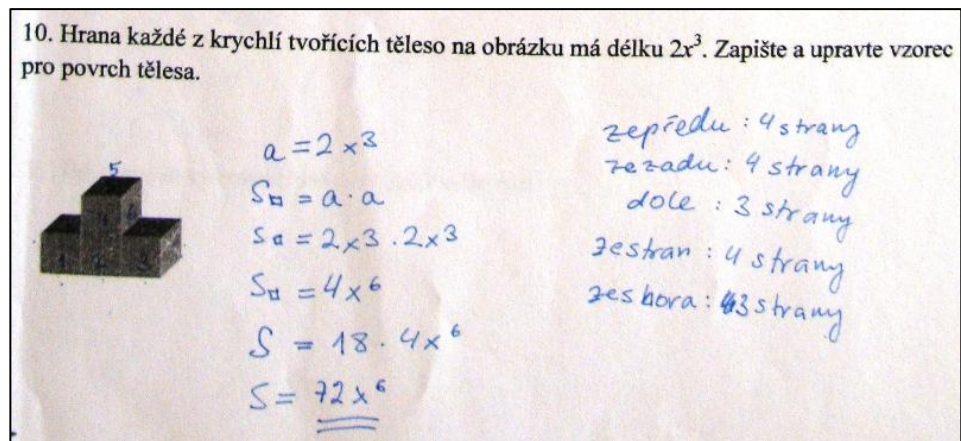 10. Hrana každé z krychlí tvořících těleso na obrázku má délku 2x³. Zapište a upravte vzorec
pro povrch tělesa.
5
4 6
1 2 3
a = 2x³
S□ = a · a
S□ = 2x³ · 2x³
S□ = 4x⁶
S = 18 · 4x⁶
S = 72x⁶
zepředu : 4 strany
zezadu : 4 strany
dole : 3 strany
zestran : 4 strany
zeshora : 3 strany